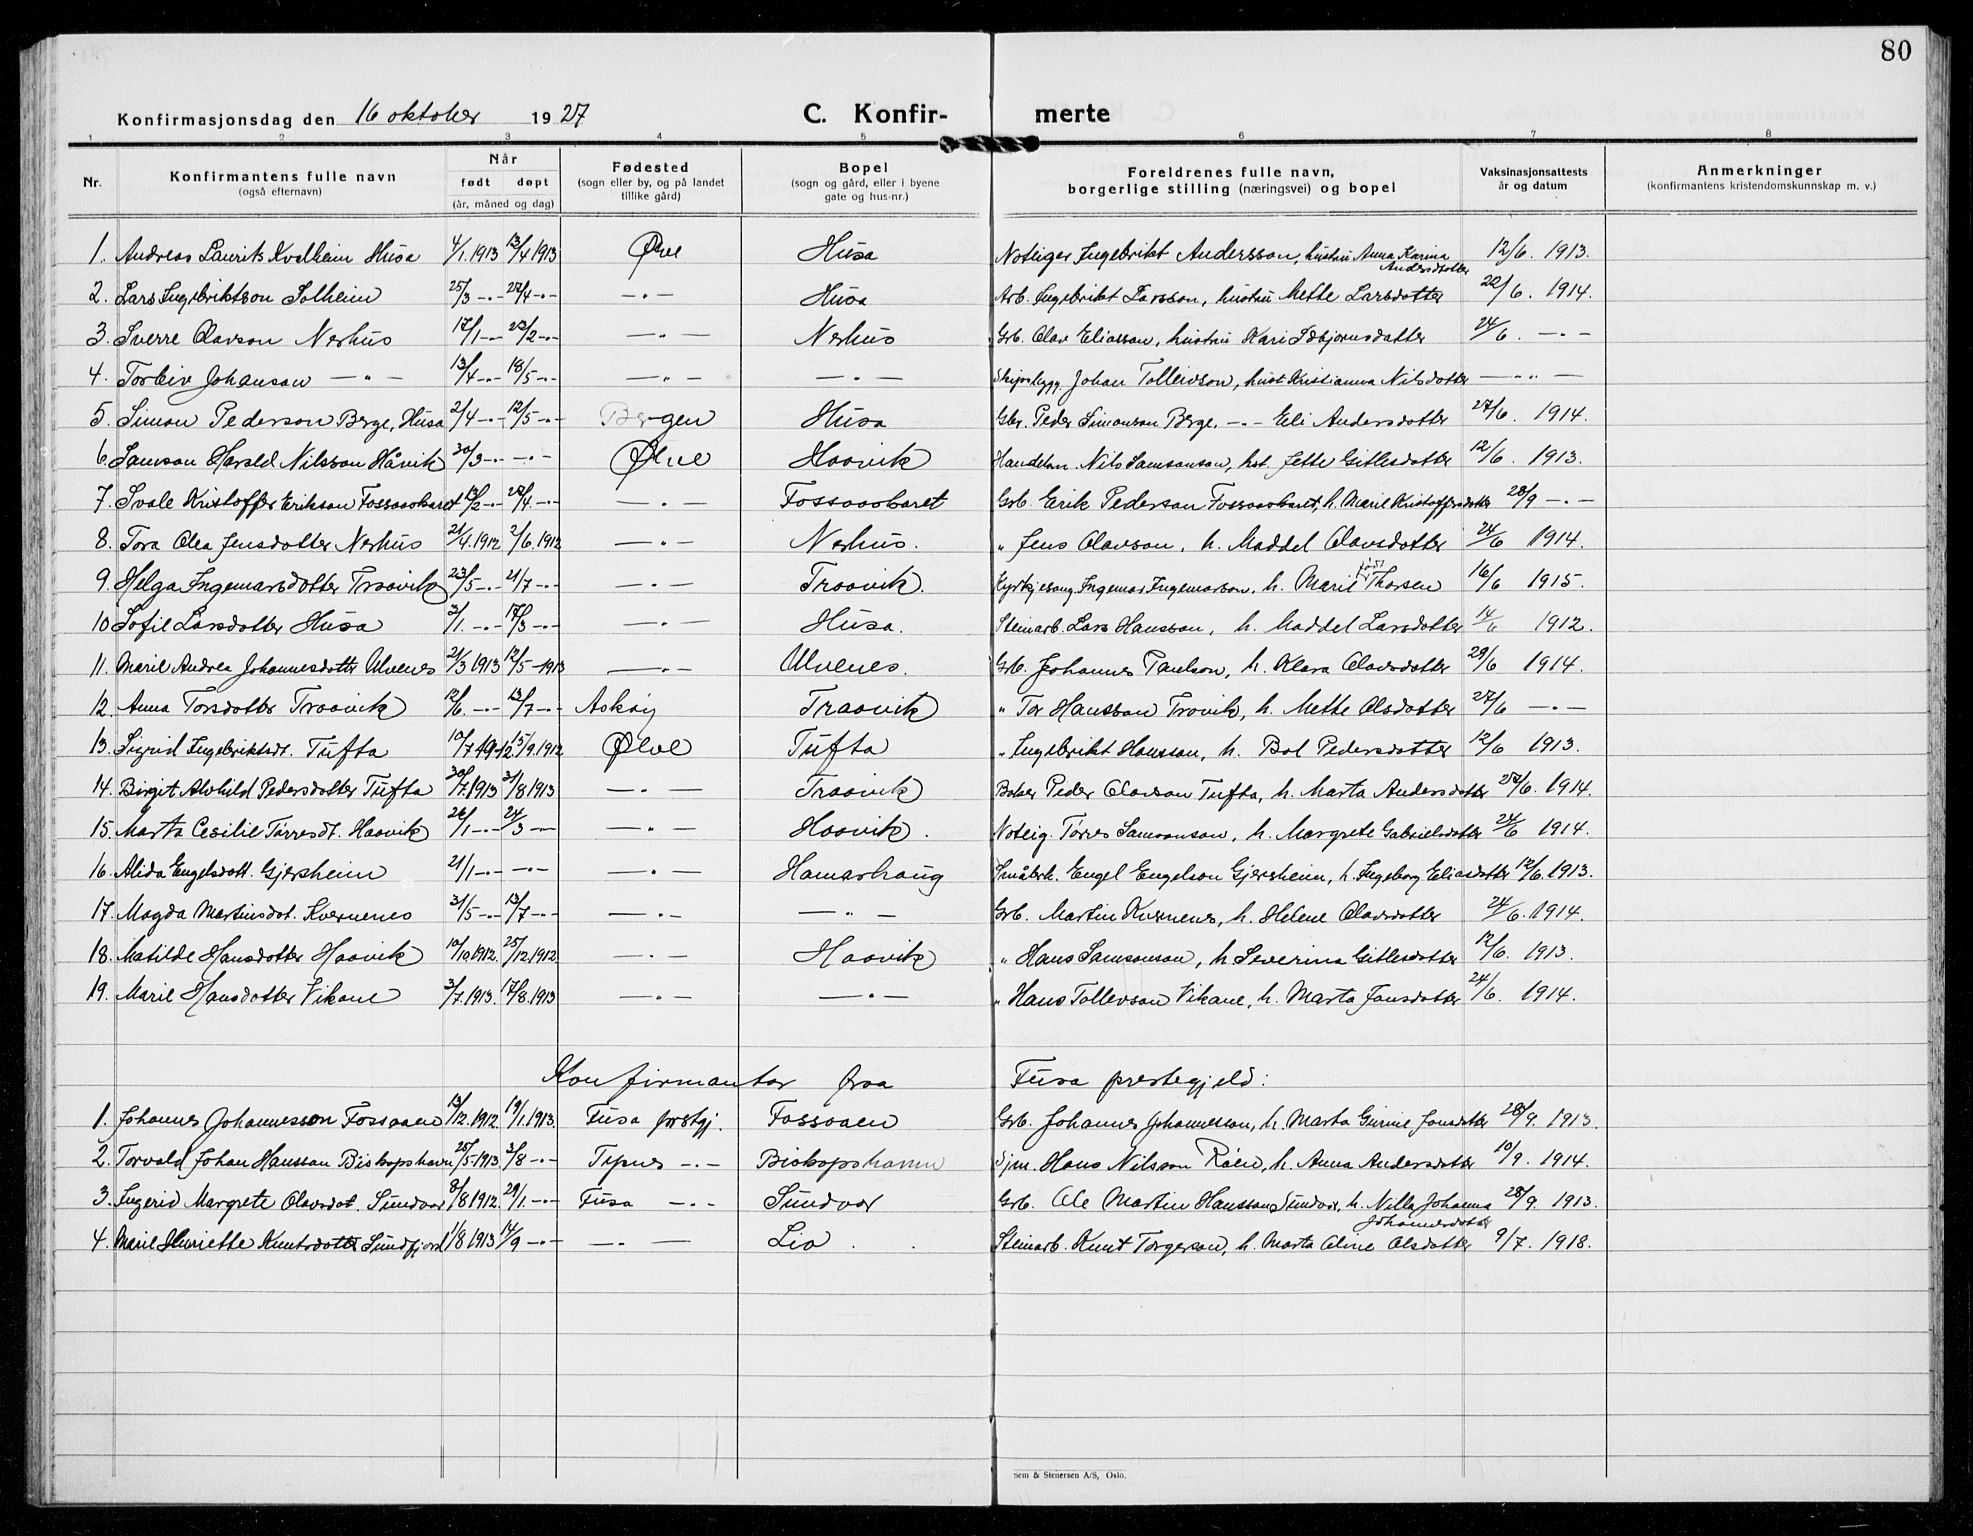 80
Konfirmasjonsdag den 16 oktober 1927 C. Konfir- merte
1 2 3 4 5 6 7 8
Nr. Konfirmantens fulle navn (også efternavn) Når født døpt (år, måned og dag) Fødested (sogn eller by, og på landet tillike gård) Bopel (sogn og gård, eller i byene gate og hus-nr.) Foreldrenes fulle navn, borgerlige stilling (næringsvei) og bopel Vaksinasjonsattests år og datum Anmerkninger (konfirmantens kristendomskunnskap m. v.)
1. Andreas Laurits Kvalheim Husa 4/1.1913 13/4 1913 Ølve Husa Noteigar Ingebrikt Andersson, hustru Anna Karina Andersdotter 12/6. 1913.
2. Lars Ingebriktson Solheim 25/3 -"- 27/4 -"- -"- Husa Arb. Ingebrikt Larsson, hustru Mette Larsdotter 22/6. 1914.
3. Sverre Olavson Nerhus 17/1 -"- 23/2 -"- -"- Nerhus Grb. Olav Eliasson, hustru Kari Isbjørnsdatter 24/6. -"-
4. Torleiv Johanson -"- 13/4 -"- 18/5 -"- -"- -"- Skipsbygg. Johan Tolleivson, hust Kristianna Nilsdotter -"-
5. Simon Pederson Berge, Husa 2/4 -"- 12/5 -"- Bergen Husa Gbr. Peder Simonson Berge. -"- Eli Andersdotter 27/6. 1914.
6. Samson Harald Nilsson Håvik 30/3 -"- -"- Ølve Haavik Handelsm. Nils Samsonson, hst. Jette Gitlesdotter 12/6. 1913.
7. Svale Kristoffer Erikson Fossaaskaret 13/2 -"- 20/4 -"- -"- Fossaaskaret Grb. Erik Pederson Fossaaskaret, h. Marie Kristoffersdotter 28/9 -"-
8. Tora Olea Jensdotter Nerhus 21/4.1912 2/6.1912 -"- Nerhus. " Jens Olavson, h. Maddel Olavsdotter 24/6 1914.
9. Helga Ingemarsdotter Traavik 23/5 -"- 21/7 -"- -"- Traavik. Kyrkjesong. Ingemar Ingemarson, h. Marie født Thorsen 16/6 1915.
10 Sofie Larsdotter Husa 3/1. -"- 17/3 -"- -"- Husa. Steinarb. Lars Hansson, h. Maddel Larsdotter 14/6 1912.
11. Marie Andrea Johannesdottr Ulvenes 21/3 1913 12/5-1913 -"- Ulvenes. Grb. Johannes Paulson, h. Klara Olavsdotter 29/6 1914.
12. Anna Torsdotter Traavik 12/6. -"- 13/7 -"- Askøy Traavik " Tor Hansson Trovik, h. Mette Olsdotter 27/6 -"-
13. Sigrid Ingebriktsdt. Tufta 10/7 1912 15/9.1912 Ølve Tufta " Ingebrikt Hansson, h. Bol Pedersdotter 12/6 1913.
14. Birgit Alvhild Pedersdotter Tufta 30/7.1913 31/8 1913 -"- Traavik Baker Peder Olavson Tufta, h. Marta Andersdotter 27/6. 1914.
15. Marta Cesilie Tørresdt. Haavik 26/1 -"- 24/3 -"- -"- Haavik. Noteig. Tørres Samsonson, h. Margrete Gabrielsdotter 24/6 1914.
16. Alida Engelsdott. Gjersheim 21/1 -"- -"- -"- Hamarhaug Småbrk. Engel Engelson Gjersheim, h. Ingeborg Eliasdotter 12/6.1913.
17. Magda Martinsdot. Kvernenes 31/5 -"- 13/7 -"- -"- -"- Grb. Martin Kvernenes, h. Helene Olavsdotter 24/6. 1914.
18. Matilde Hansdotter Haavik 10/10 1912. 25/12 1912 -"- Haavik " Hans Samsonson, h. Severina Gitlesdotter 12/6. 1913.
19. Marie Hansdotter Vikane 3/7.1913. 17/8.1913 -"- -"- " Hans Tollevson Vikane, h. Marta Jonsdotter 24/6. 1914.
Konfirmantar fraa Fusa prestegjeld:
1. Johannes Johannesson Fossaaen 13/12.1912 19/1.1913. Fusa prstgj. Fossaaen Grb. Johannes Johannesson, h. Marta Gurine Jonsdotter 28/9. 1913.
2. Torvald Johan Hansson Biskopshavn 25/5-1913. 3/8 -"- -"- Biskopshamn Sjm. Hans Nilsson Røen, h. Anna Andersdotter 10/9. 1914.
3. Ingerid Margrete Olavsdot. Sundvor 8/8 1912. 29/1. -"- Fusa -"- Sundvor Grb. Ole Martin Hansson Sundvor, h. Nilla Johanna Johannesdotter 28/9. 1913.
4. Marie Henriette Knutsdotter Sundfjord 1/8 1913 14/9 -"- -"- Lio Steinarb. Knut Torgerson, h. Marta Oline Olsdotter 9/7. 1918.
Sem & Stenersen A/S, Oslo.